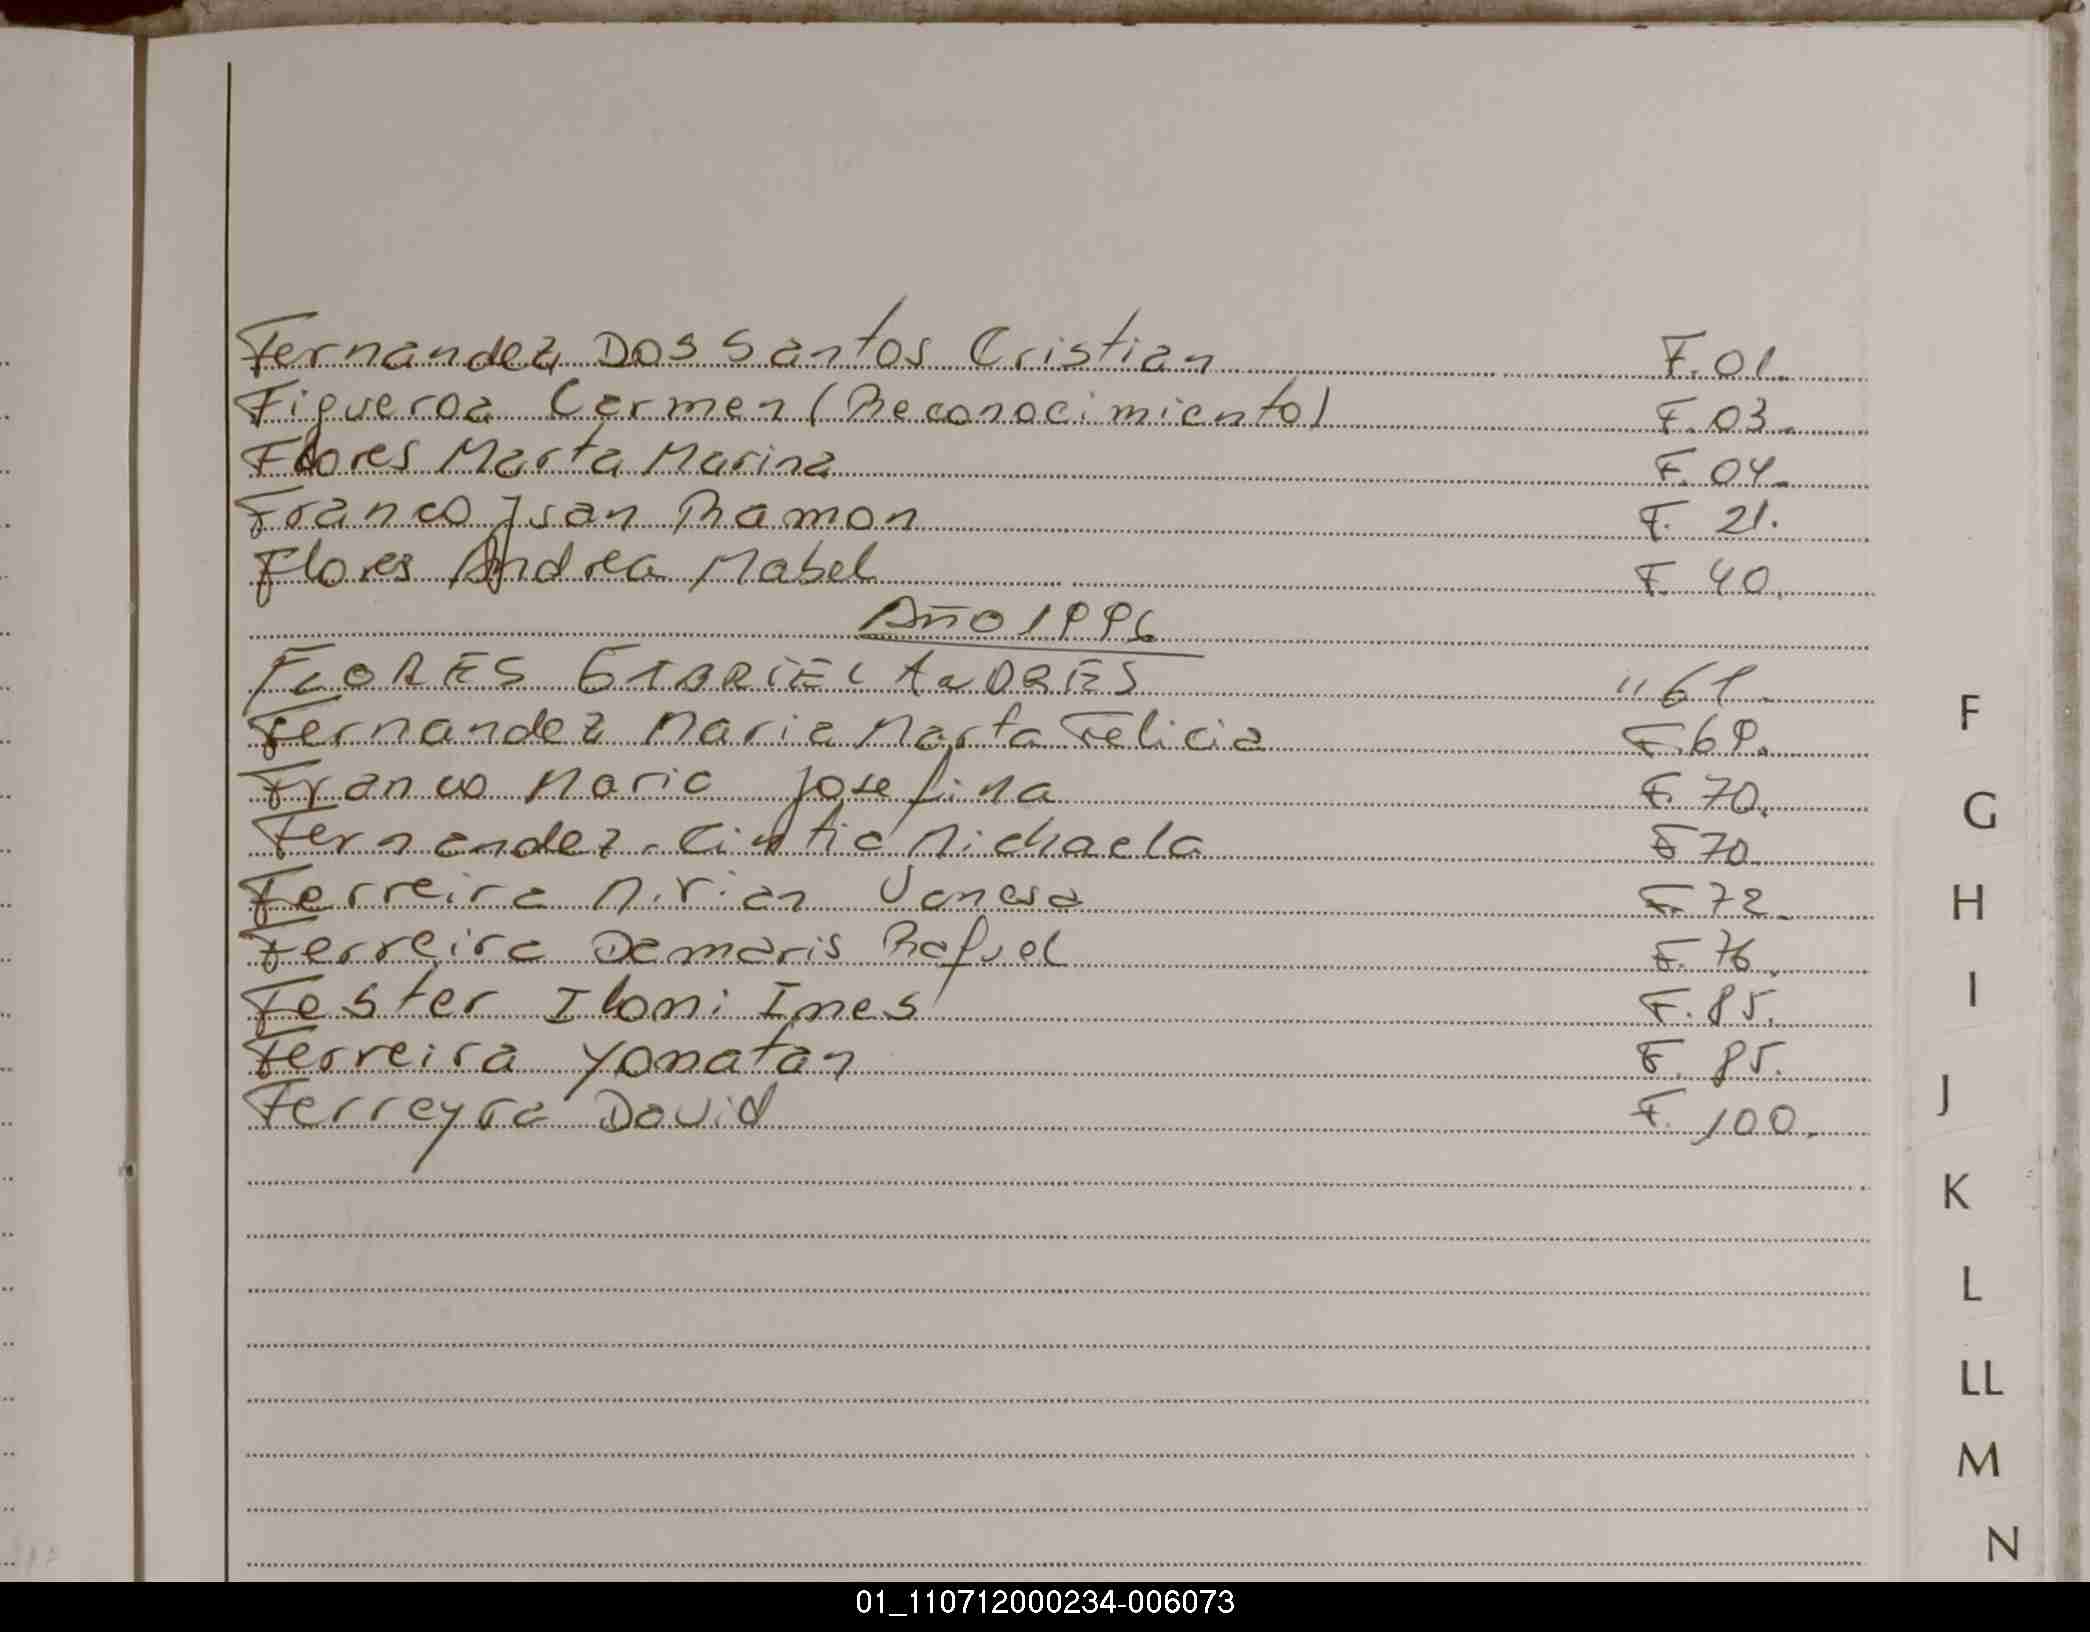 Fernandez Dos Santos Cristian F. 01.
Figueroa Carmen (Reconocimiento) F. 03.
Flores Marta Marina F. 04.
Franco Juan Ramon F. 21.
Flores Andrea Mabel F. 40.
Año 1996
FLORES GABRIEL ANDRES " 61.
Fernandez Maria Marta Felicia F. 69.
Franco Maria Josefina F. 70.
Fernandez Cintia Michaela F 70
Ferreira Mirian Vanesa F 72.
Ferreira Damaris Rafuel F. 76.
Fester Iloni Ines F. 85.
Ferreira Yonatan F. 85.
Ferreyra David F. 100.
F
G
H
I
J
K
L
LL
M
N
01_110712000234-006073